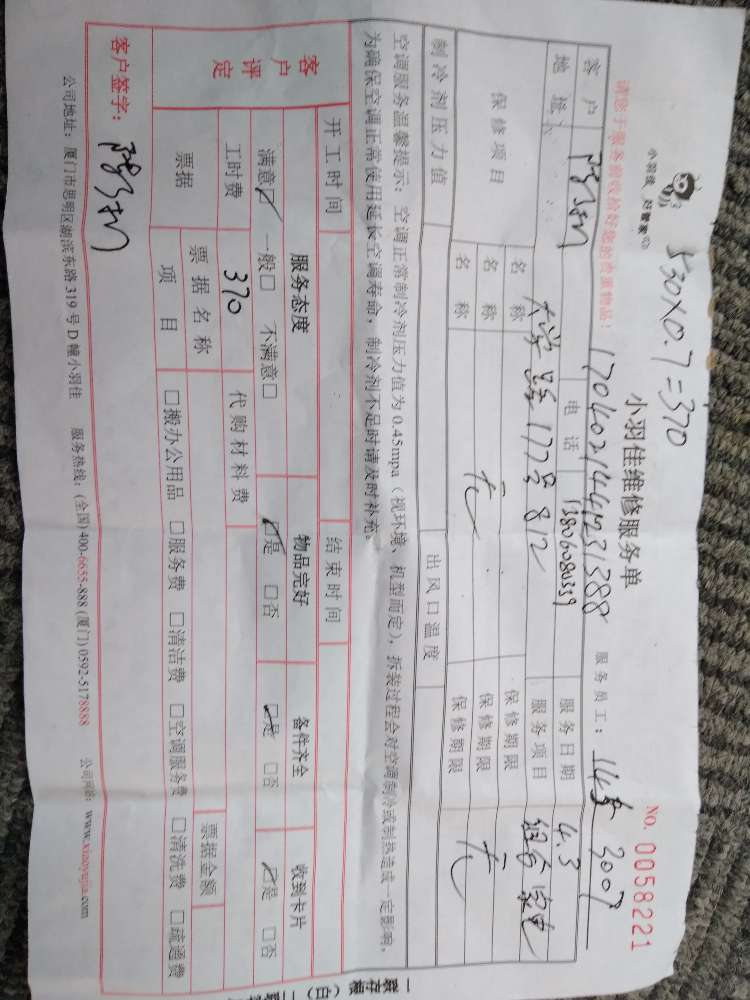 530×0.7=370
小羽佳 好管家
小羽佳维修服务单
NO. 0058221
170402144231388
请您于服务前收拾好您的贵重物品!
服务员工: 3007
客户 电话 13806080339 服务日期 4.3
地址 大学路177号812 服务项目 组合家电
保修项目 名称 保修期限
名称 无 保修期限 无
名称 保修期限
制冷剂压力值 出风口温度
空调服务温馨提示: 空调正常制冷剂压力值为0.45mpa(视环境、机型而定), 拆装过程会对空调制冷或制热造成一定影响,
为确保空调正常使用延长空调寿命, 制冷剂不足时请及时补充。
开工时间 结束时间
客户评定 服务态度 物品完好 备件齐全 收到卡片
满意☑ 一般□ 不满意□ ☑是 □否 ☑是 □否 ☑是 □否
工时费 370 代购材料费
票据 票据名称 票据金额
项目 □搬办公用品 □服务费 □清洁费 □空调服务费 □清洗费 □疏通费
客户签字:
公司地址: 厦门市思明区湖滨东路319号D幢小羽佳 服务热线: (全国)400-6655-888 (厦门)0592-5178888 公司网站: www.xiaoyujia.com